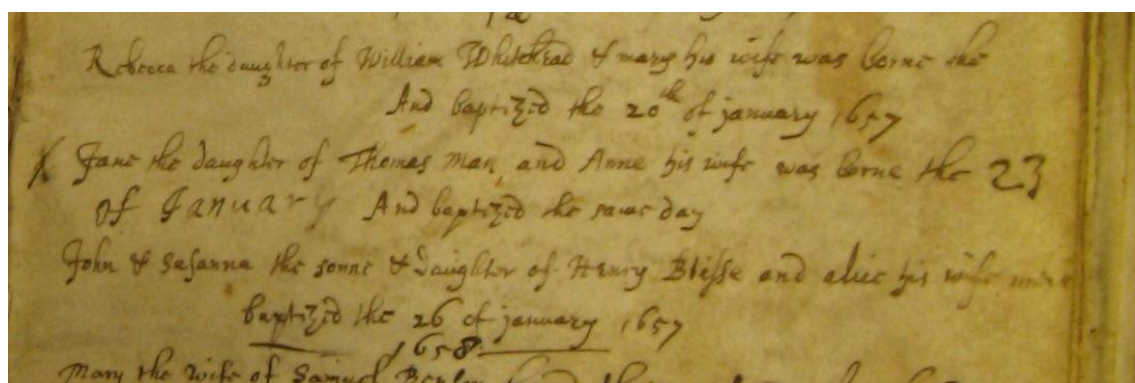 Rebecca the daughter of William Whitehead & mary his wife was borne the
And baptized the 20th of january 1657
X Jane the daughter of Thomas Man and Anne his wife was borne the 23
of January And baptized the same day
John & Susanna the sonne & daughter of Henry Blisse and alice his wife were
baptized the 26 of january 1657
1658
Mary the wife of Samuel